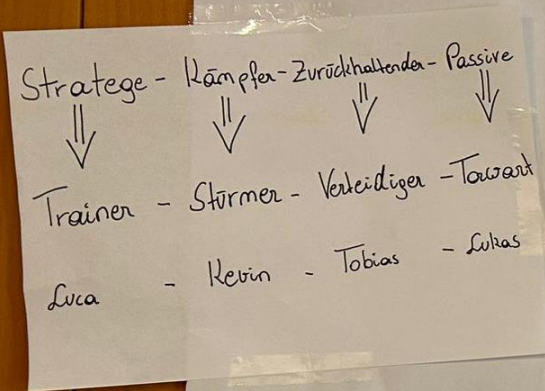 Stratege - Kämpfer - Zurückhaltender - Passive
⇓ ⇓ ⇓ ⇓
Trainer - Stürmer - Verteidiger - Torwart
Luca - Kevin - Tobias - Lukas